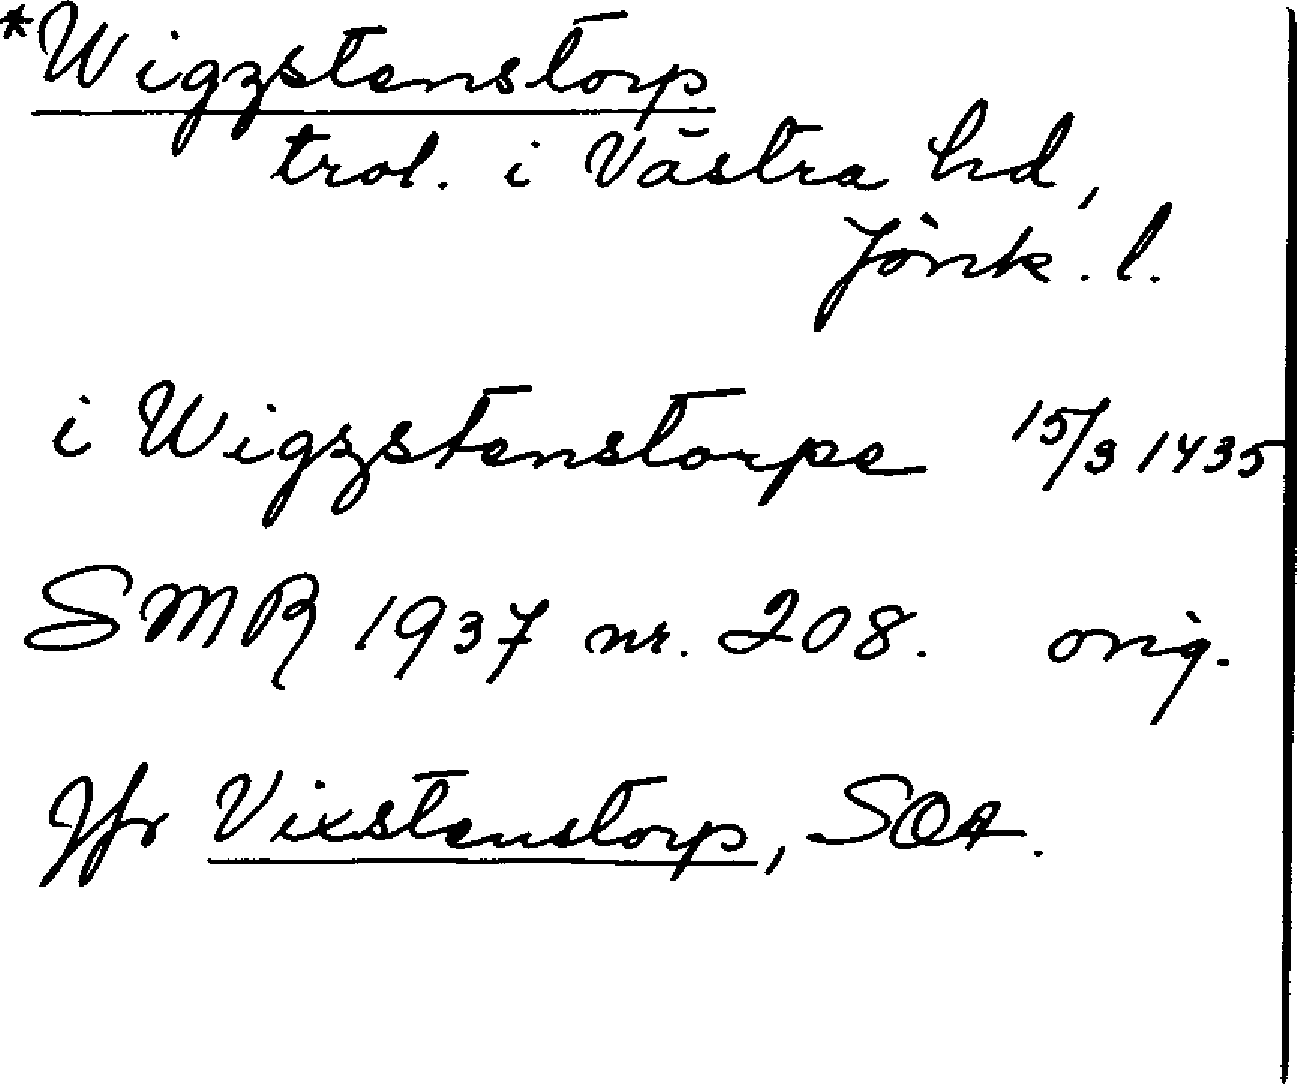 *Wigzstenstorp
trol. i Västra hd,
Jönk. l.
i Wigzstenstorpe 15/3 1435
SMR 1937 nr. 208. orig.
Jfr Vixstenstorp, SOA.